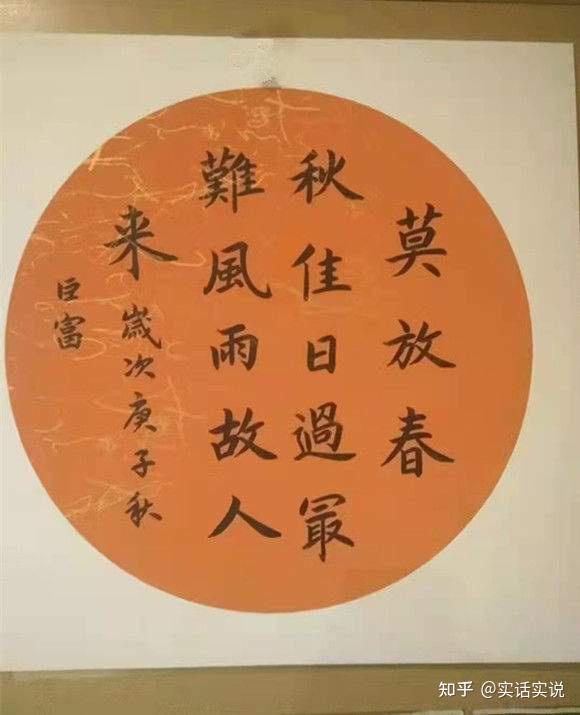 莫放春
秋佳日過冣
難風雨故人
来
歳次庚子秋
巨富
知乎 @实话实说